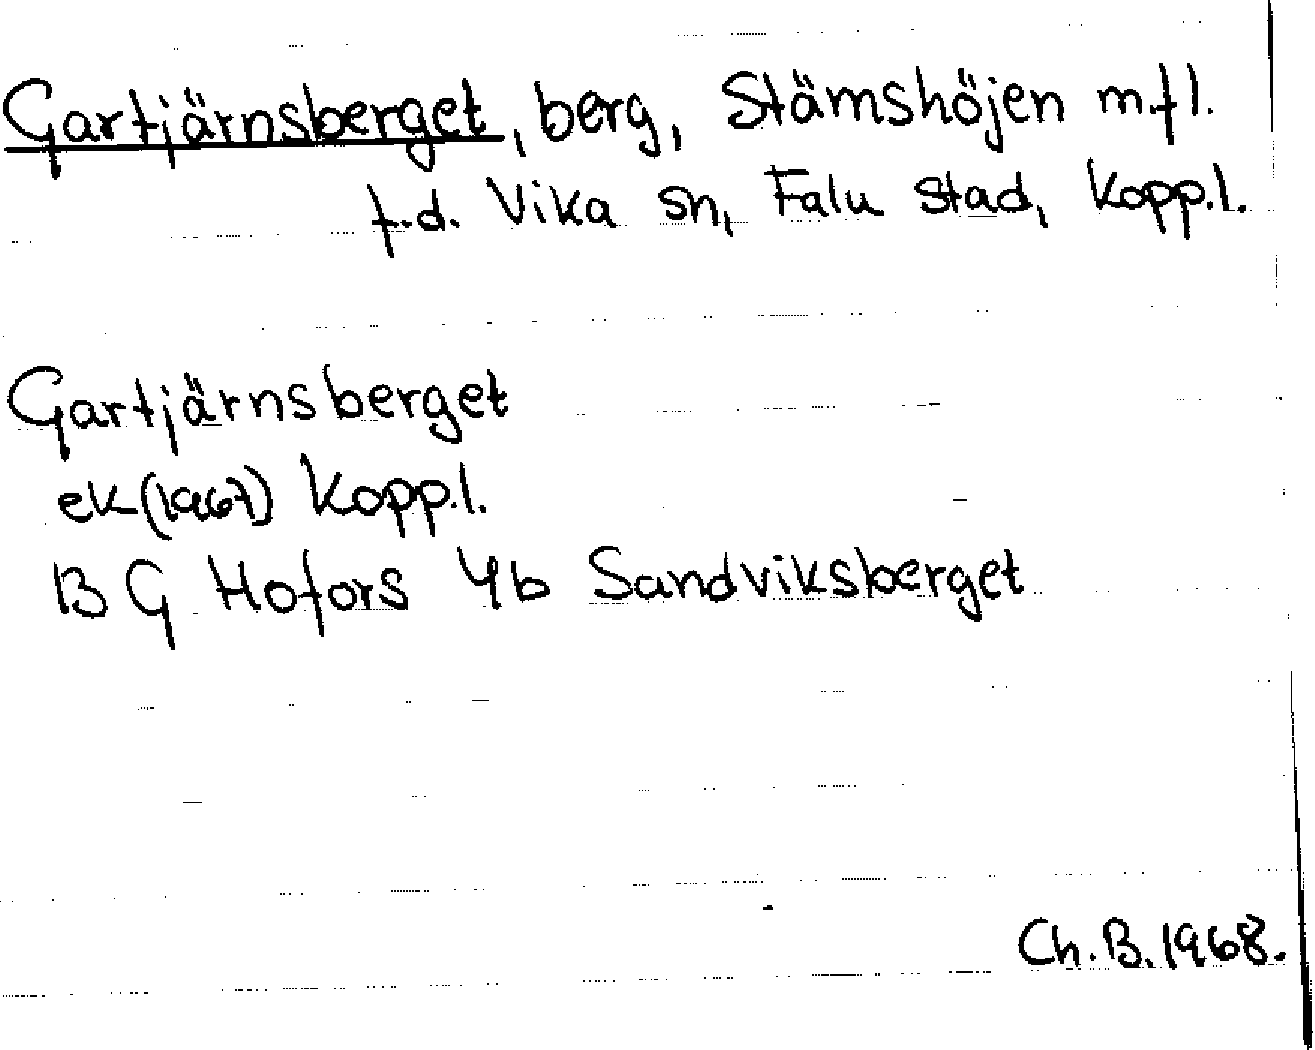 Gartjärnsberget, berg, Stämshöjen m.fl.
f.d. Vika sn, Falu stad, Kopp.l.
Gartjärnsberget
ek (1967) Kopp.l.
BG Hofors 4b Sandviksberget
Ch. B. 1968.